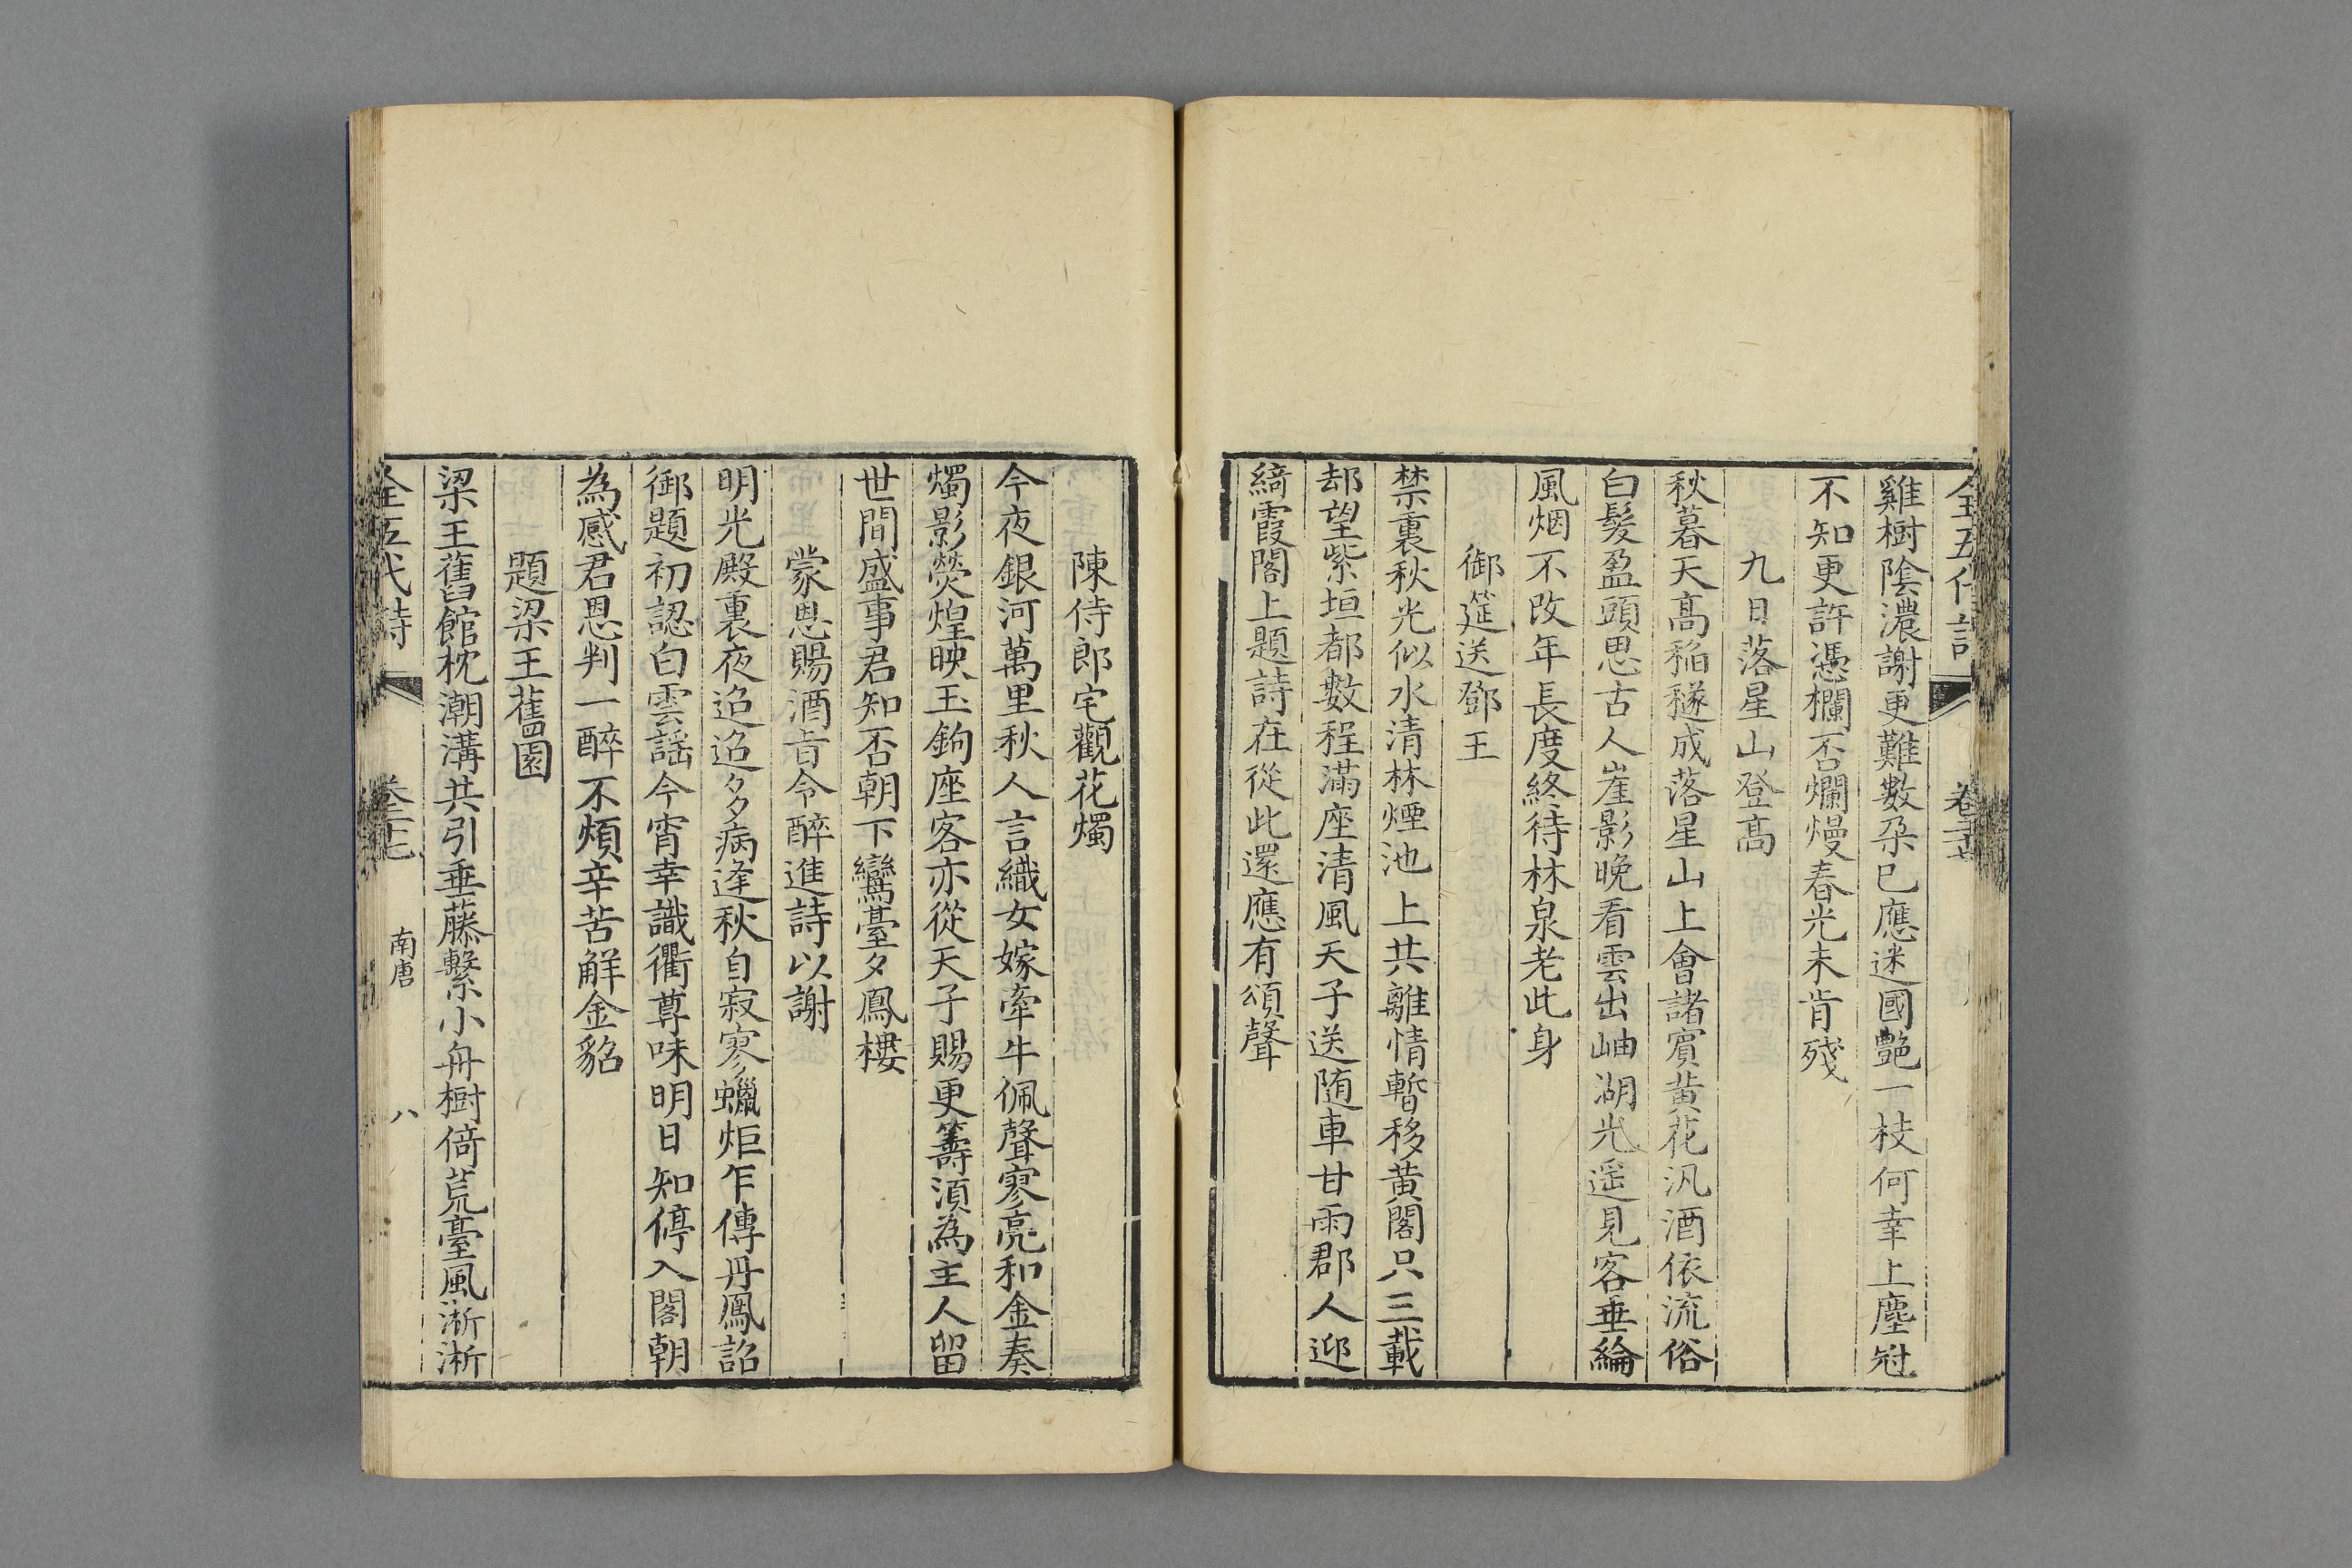 雞樹陰濃謝更難數朶巳應迷國艷一枝何幸上塵冠
不知更許憑欄否爛熳春光未肯殘
九日落星山登髙
秋暮天髙稲穟成落星山上會諸賔黄花汎酒依流俗
白髪盈頭思古人崖影晚看雲出岫湖光遥見客垂綸
風烟不改年長度終待林泉老此身
御筵送鄧王
禁裏秋光似水清林煙池上共離情暫移黄閣只三載
却望紫垣都數程滿座清風天子送随車甘雨郡人迎
綺霞閣上題詩在從此還應有頌聲
陳侍郎宅觀花燭
今夜銀河萬里秋人言織女嫁牽牛佩聲寥亮和金奏
燭影熒煌映玉鉤座客亦從天子賜更籌湏為主人留
世間盛事君知否朝下鸞臺夕鳳樓
蒙恩賜酒旨令醉進詩以謝
明光殿裏夜迢迢多病逢秋自寂寥蠟炬乍傳丹鳳詔
御題初認白雲謡今宵幸識衢尊味明日知停入閣朝
為感君恩判一醉不煩辛苦解金貂
題梁王舊園
梁王舊館枕潮溝共引垂藤繫小舟樹倚荒臺風淅淅
全五代詩 卷三十七 南唐 八